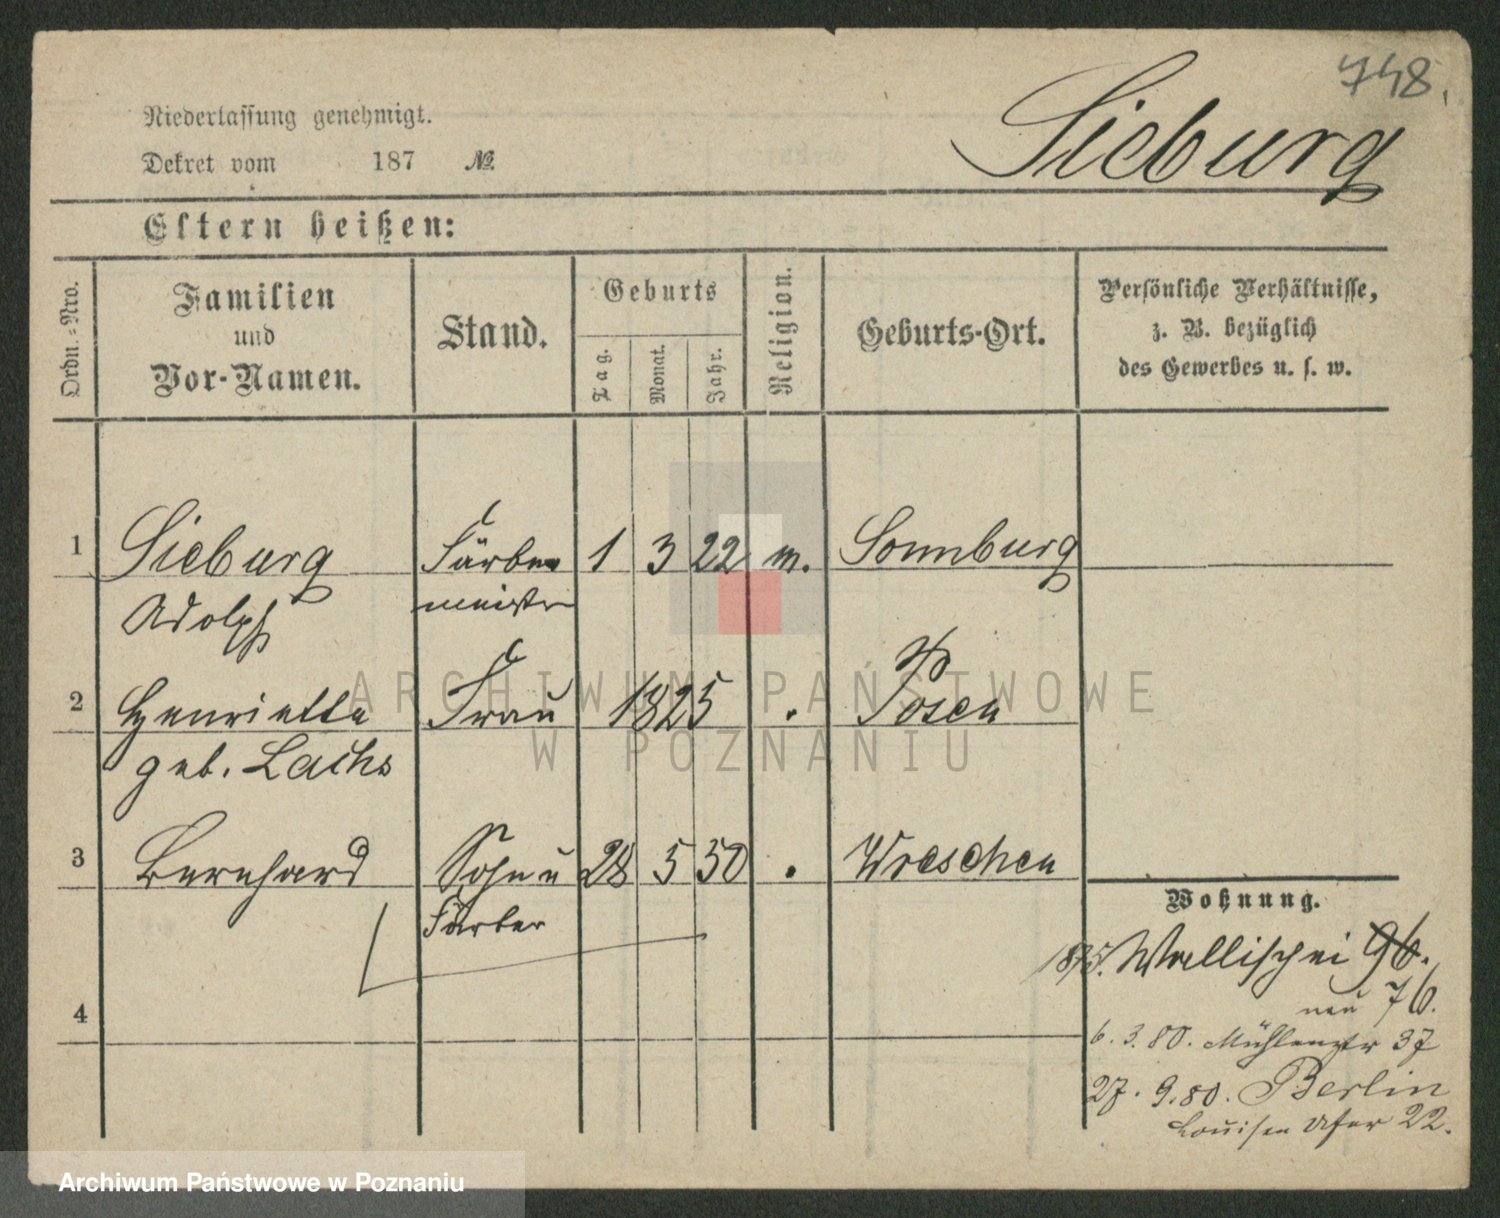 748.
Sieburg
Niederlassung genehmigt.
Dekret vom 187 №
Eltern heißen:
Ordn.-Nro. Familien und Vor-Namen. Stand. Geburts Tag. Monat. Jahr. Religion. Geburts-Ort. Persönliche Verhältnisse, z. B. bezüglich des Gewerbes u. s. w.
1 Sieburg Färber 1 3 22 m. Sonnburg
Adolph meister
2 Henriette Frau 1825 Posen
geb. Lachs
3 Bernhard Sohn u 28 5 50 Wreschen
Färber
Wohnung.
1875. Wallischei 96.
neu 76.
4
6. 3. 80. Mühlenstr 37
27. 9. 80. Berlin
Louisen Ufer 22.
ARCHIWUM PAŃSTWOWE
W POZNANIU
Archiwum Państwowe w Poznaniu